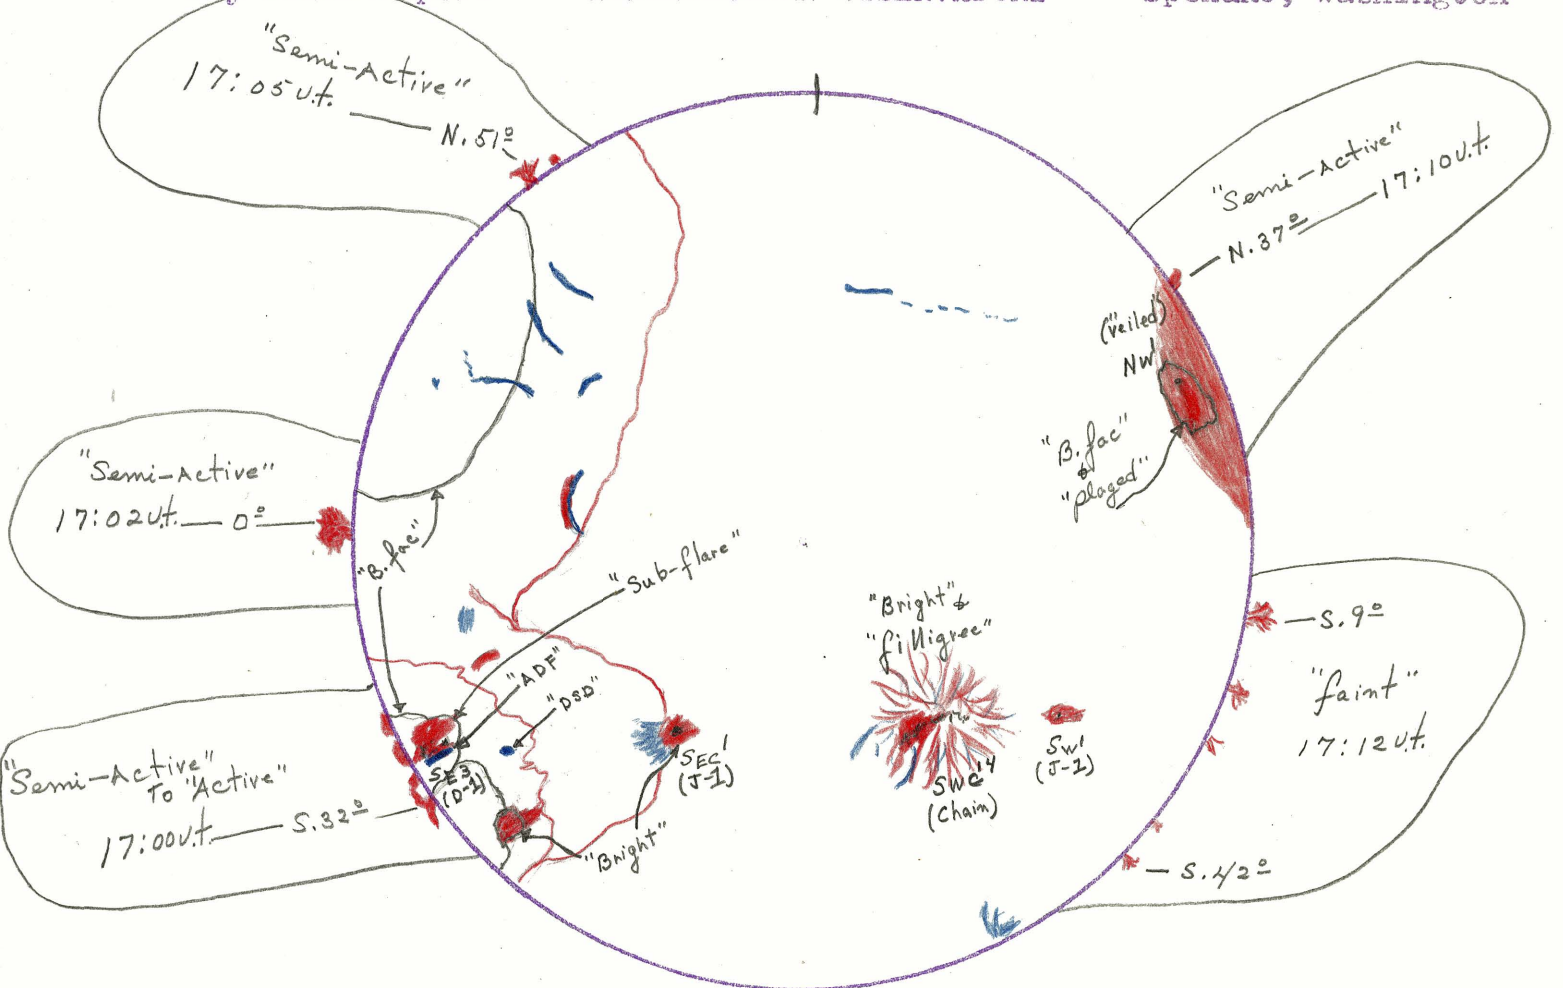 Spokane, Washington
"Semi-Active"
17:05 U.t.
N.51º
"Semi-Active"
17:10 U.t.
N.37º
(veiled)
NW'
"B.fac"
&
"plaged"
"Semi-Active"
17:02 U.t. — 0º
"B.fac"
"Sub-flare"
"ADF"
"DSD"
"Bright" &
"filligree"
S.9º
"faint"
17:12 U.t.
S.42º
"Semi-Active"
To "Active"
17:00 U.t. — S.32º
SE³
(D-1)
SEC'
(J-1)
"Bright"
SWC'4
(Chain)
SW'
(J-1)